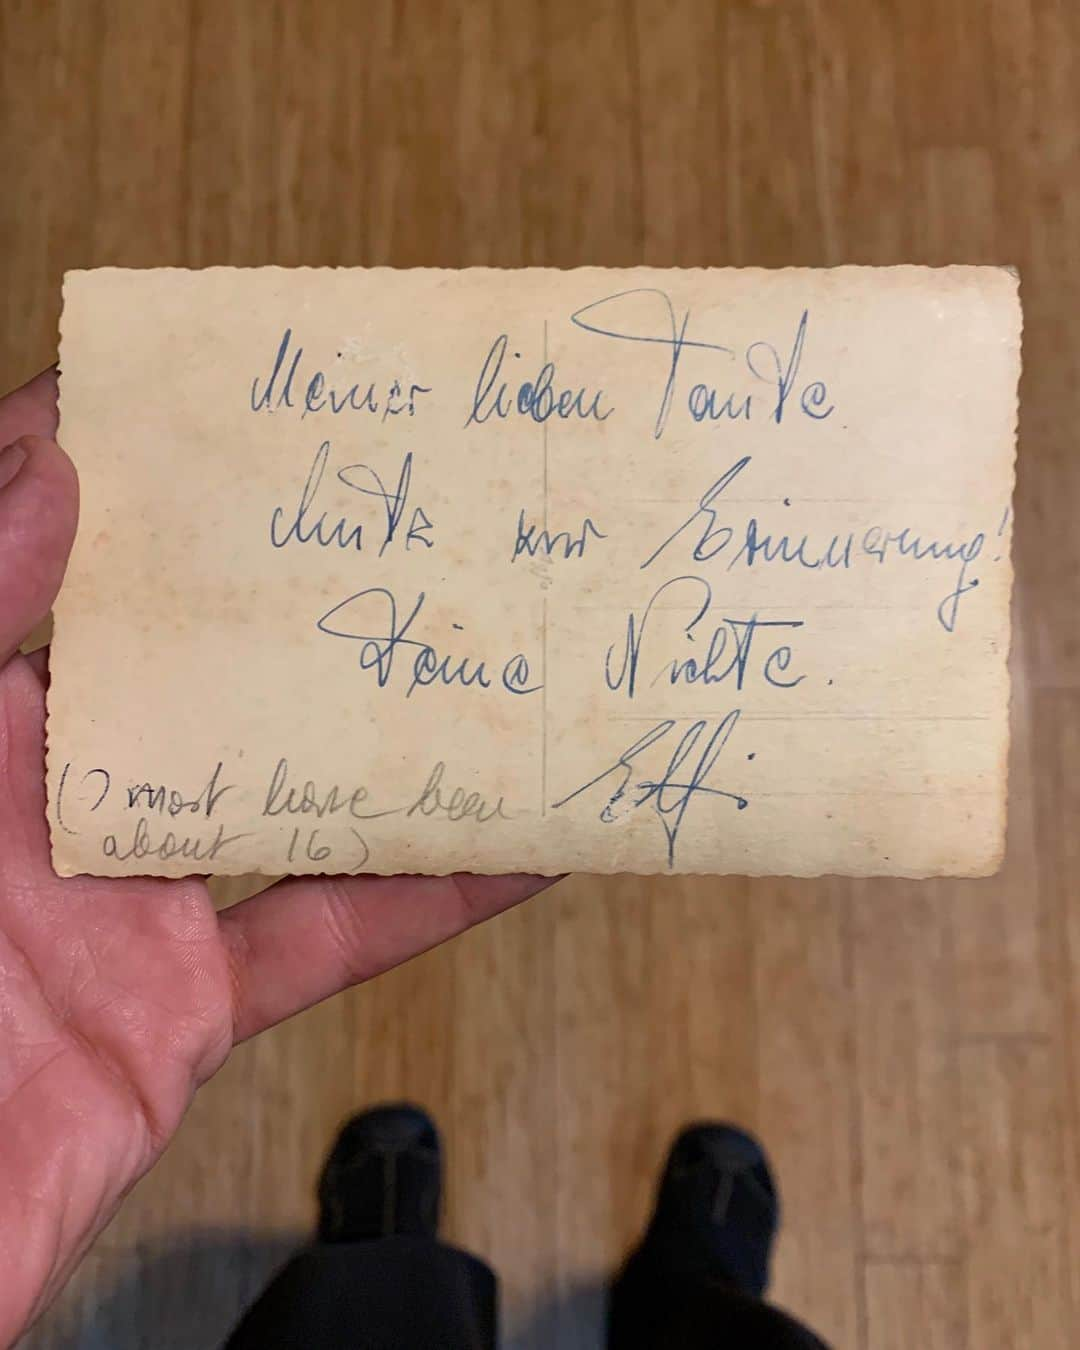 Meiner lieben Tante
zur Erinnerung!
Deine Nichte.
Effi.
(I must have been
about 16)